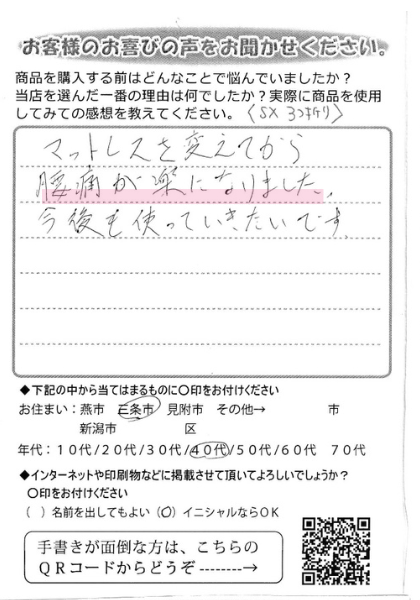 お客様のお喜びの声をお聞かせください。
商品を購入する前はどんなことで悩んでいましたか？
当店を選んだ一番の理由は何でしたか？実際に商品を使用
してみての感想を教えてください。
マットレスを変えてから
腰痛が楽になりました。
今後も使っていきたいです。
◆下記の中から当てはまるものに〇印をお付けください
お住まい：燕市 三条市 見附市 その他→ 市
新潟市 区
年代：１０代/２０代/３０代/４０代/５０代/６０代 ７０代
◆インターネットや印刷物などに掲載させて頂いてよろしいでしょうか？
〇印をお付けください
（ ）名前を出してもよい（〇）イニシャルならＯＫ
手書きが面倒な方は、こちらの
ＱＲコードからどうぞ -------→